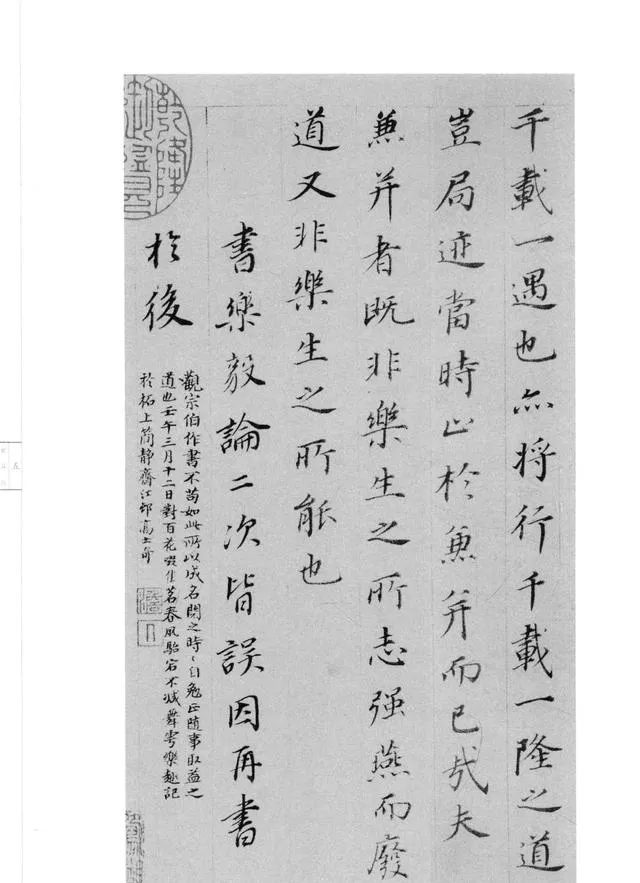 千載一遇也亦將行千載一隆之道
豈局迹當時止於兼并而已哉夫
兼并者既非樂生之所志强燕而廢
道又非樂生之所能也
書樂毅論二次皆誤因再書
於後
觀宗伯作書不苟如此所以成名閱之時〻自勉正隨事取益之
道也壬午三月十二日對百花啜佳茗春風駘宕不減舞雩樂趣記
於柘上簡静齋江邨高士奇